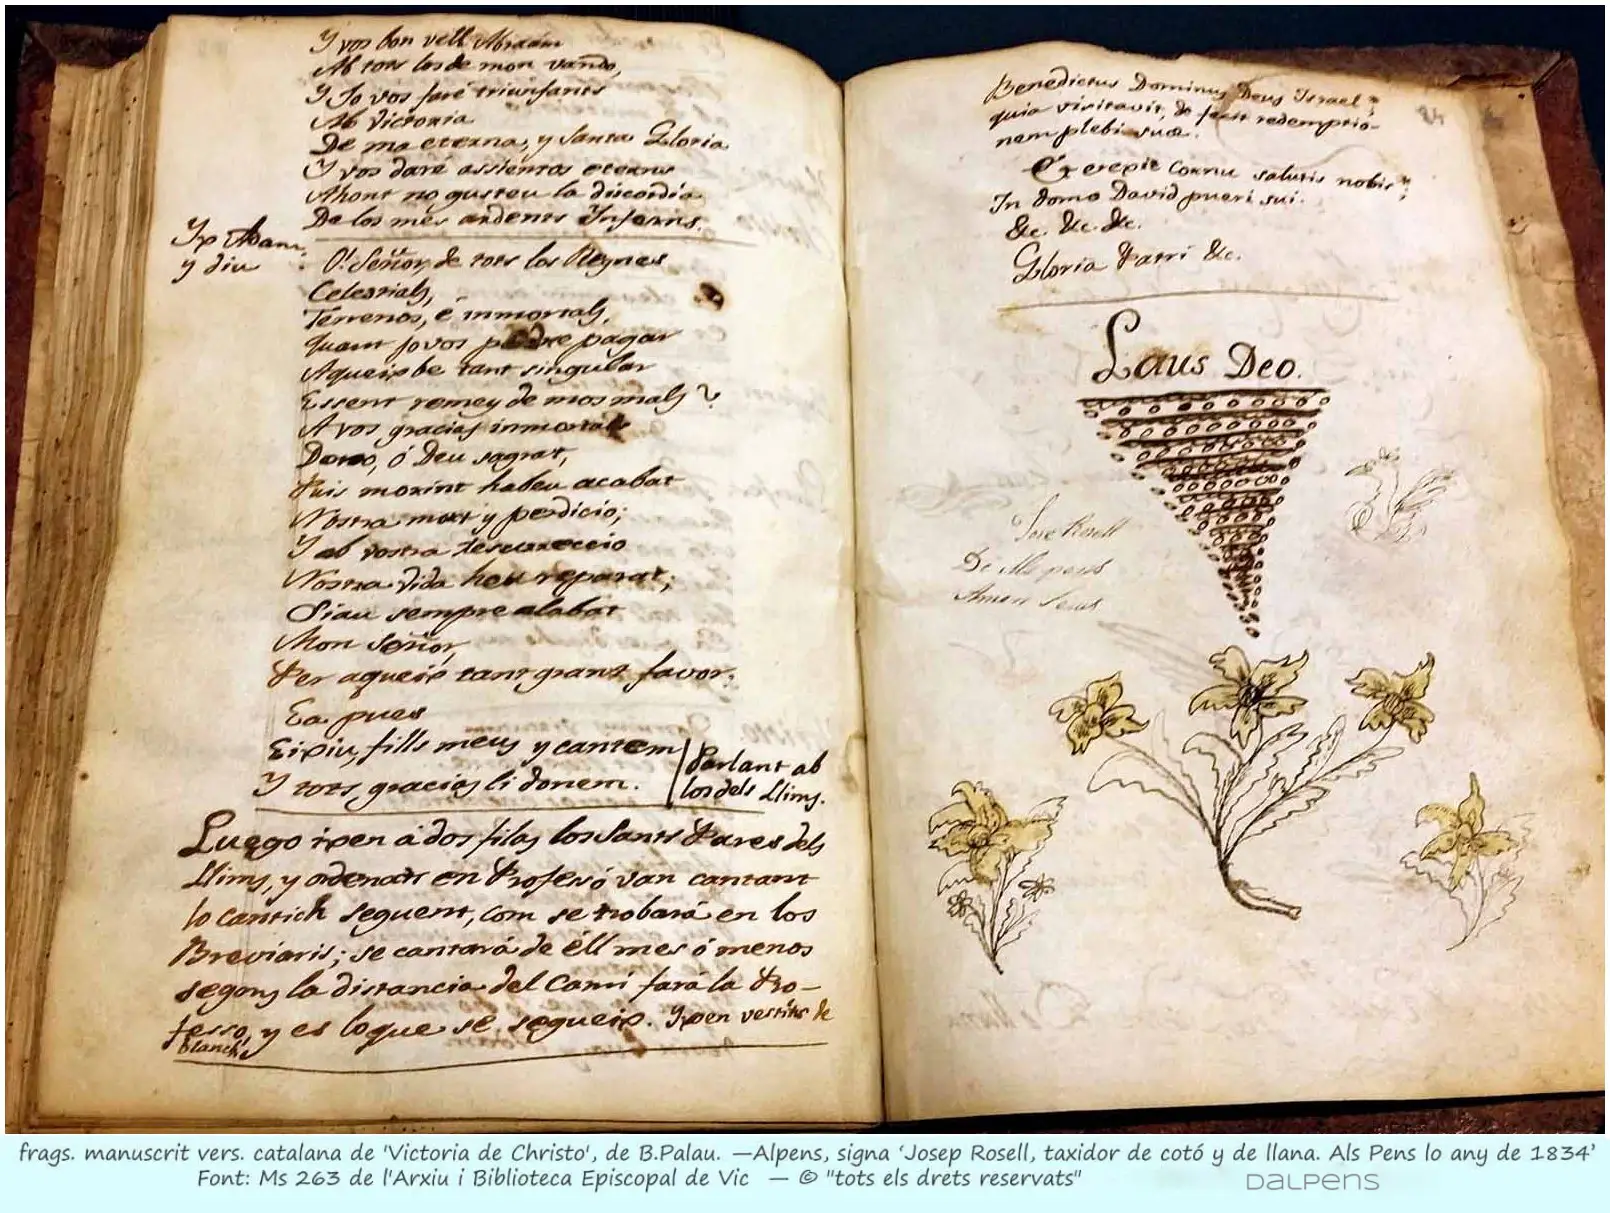 Y vos bon vell Abraám
Ab tots los de mon vando,
Y Jo vos faré triunfants
Ab Victoria
De ma eterna, y Santa Gloria
Y vos daré assientos eterns
Ahont no gusteu la discordia
De los més ardents Inferns.
Yx Adam,
y diu
O! Señor, de tots los Regnes
Celestials,
Terrenos, é inmortals,
Quant jo vos podre pagar
Aqueix be tant singular
Essent remey de mos mals?
A vos gracias inmortals
Dono, ó Deu sagrat,
Puis morint habeu acabat
Nostra mort y perdicio;
Y ab vostra resurreccio
Nostra vida heu reparat;
Siau sempre alabat
Mon señor,
Per aqueix tant grant favor.
Ea pues
Eixiu, fills meus y cantem
Y tots gracias li donem.
Parlant ab
los dels Llims.
Luego ixen á dos filas los Sants Pares dels
Llims, y ordenats en Profesó van cantant
lo cantich seguent, com se trobará en los
Breviaris; se cantará de éll mes ó menos
segons la distancia del Camí fará la Pro-
fesso, y es lo que se segueix. Ixen vestits de
blanch.
Benedictus Dominus Deus Israel;
quia visitavit, & fecit redemptio-
nem plebi suæ.
Et erexit cornu salutis nobis;
In domo David pueri sui.
&c. &c. &c.
Gloria Patri &c.
Laus Deo.
Jose Rosell
De Als pens
Amen
frags. manuscrit vers. catalana de 'Victoria de Christo', de B.Palau. —Alpens, signa ‘Josep Rosell, taxidor de cotó y de llana. Als Pens lo any de 1834’
Font: Ms 263 de l'Arxiu i Biblioteca Episcopal de Vic — © "tots els drets reservats"
DALPENS